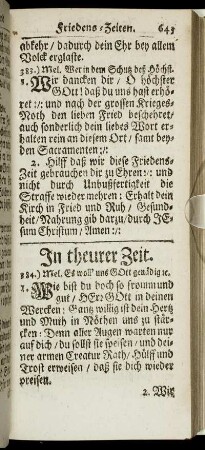 Friedens-Zeiten. 643
abkehr / dadurch dein Ehr bey allem
Volck erglaste.
383.) Mel. Wer in dem Schutz deß Höchst.
1. Wir dancken dir / O höchster
GOtt! daß du uns hast erhö-
ret :/: und nach der grossen Krieges-
Noth den lieben Fried bescheret/
auch sonderlich dein liebes Wort er-
halten rein an diesem Ort / samt bey-
den Sacramenten :/:
2. Hilff daß wir diese Friedens-
Zeit gebrauchen dir zu Ehren :/: und
nicht durch Unbußfertigkeit die
Straffe wieder mehren : Erhalt dein
Kirch in Fried und Ruh / Gesund-
heit / Nahrung gib darzu / durch JE-
sum Christum / Amen :/:
In theurer Zeit.
384.) Mel. Es woll' uns GOtt genädig ꝛc.
1. Wie bist du doch so fromm und
gut / HErr GOtt in deinen
Wercken: Gantz willig ist dein Hertz
und Muth in Nöthen uns zu stär-
cken: Denn aller Augen warten nur
auf dich / du sollst sie speisen / und dei-
ner armen Creatur Rath / Hülff und
Trost erweisen / daß sie dich wieder
preisen.
2. Wir